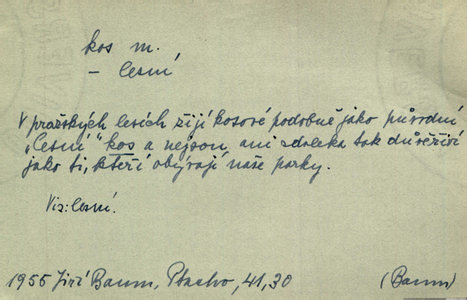 kos m.
– lesní
V pražských lesích žijí kosové podobně jako původní
„lesní“ kos a nejsou ani zdaleka tak důvěřiví
jako ti, kteří obývají naše parky.
Viz: lesní.
1955 Jiří Baum, Ptactvo, 41,30 (Baum)